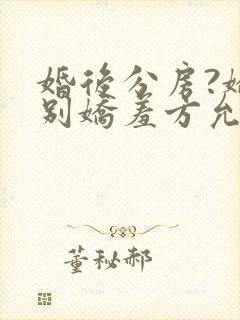 婚後分房?
別嬌羞方允
董秘郝